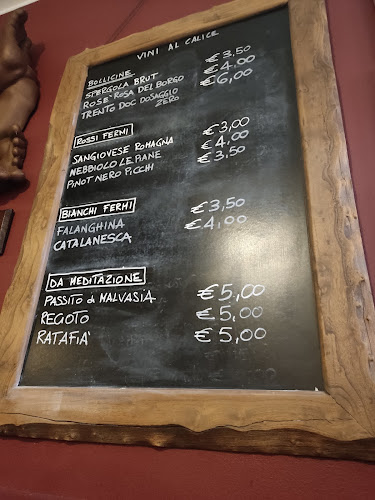 VINI AL CALICE
BOLLICINE
SPERGOLA BRUT €3,50
ROSE' ROSA DEL BORGO €4,00
TRENTO DOC DOSAGGIO ZERO €6,00
ROSSI FERMI
SANGIOVESE ROMAGNA €3,00
NEBBIOLO LE PIANE €4,00
PINOT NERO PICCHI €3,50
BIANCHI FERMI
FALANGHINA €3,50
CATALANESCA €4,00
DA MEDITAZIONE
PASSITO di MALVASIA €5,00
REGOTO €5,00
RATAFIA' €5,00